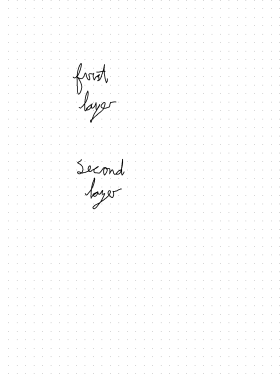 first
layer
second
layer